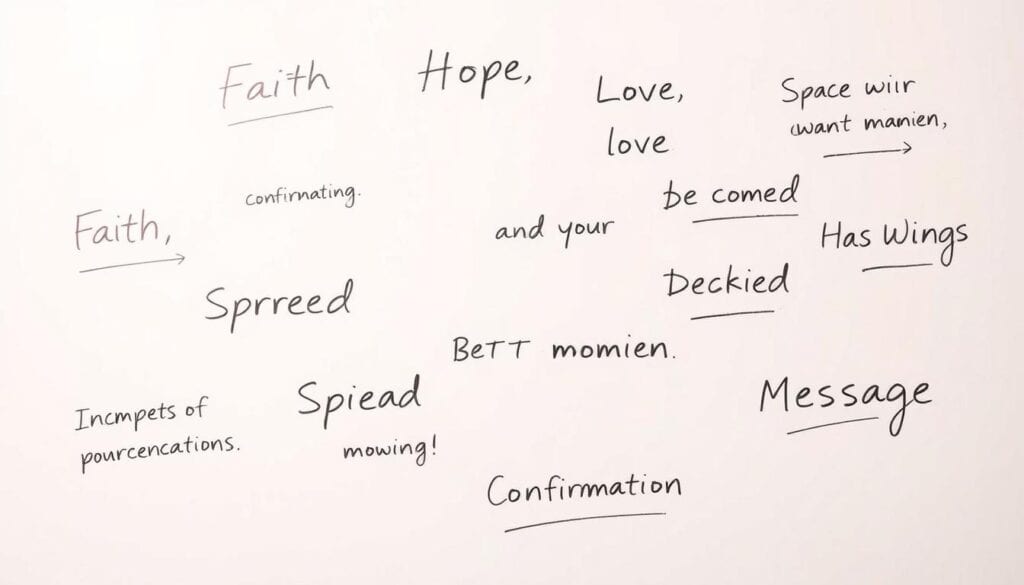 Faith
Hope,
Love,
love
Space wiir
want mamien,
confirmating.
be comed
Faith,
and your
Has Wings
Sprreed
Deckied
BeTT momien.
Incmpets of
pourcencations.
Spiead
mowing!
Message
Confirmation